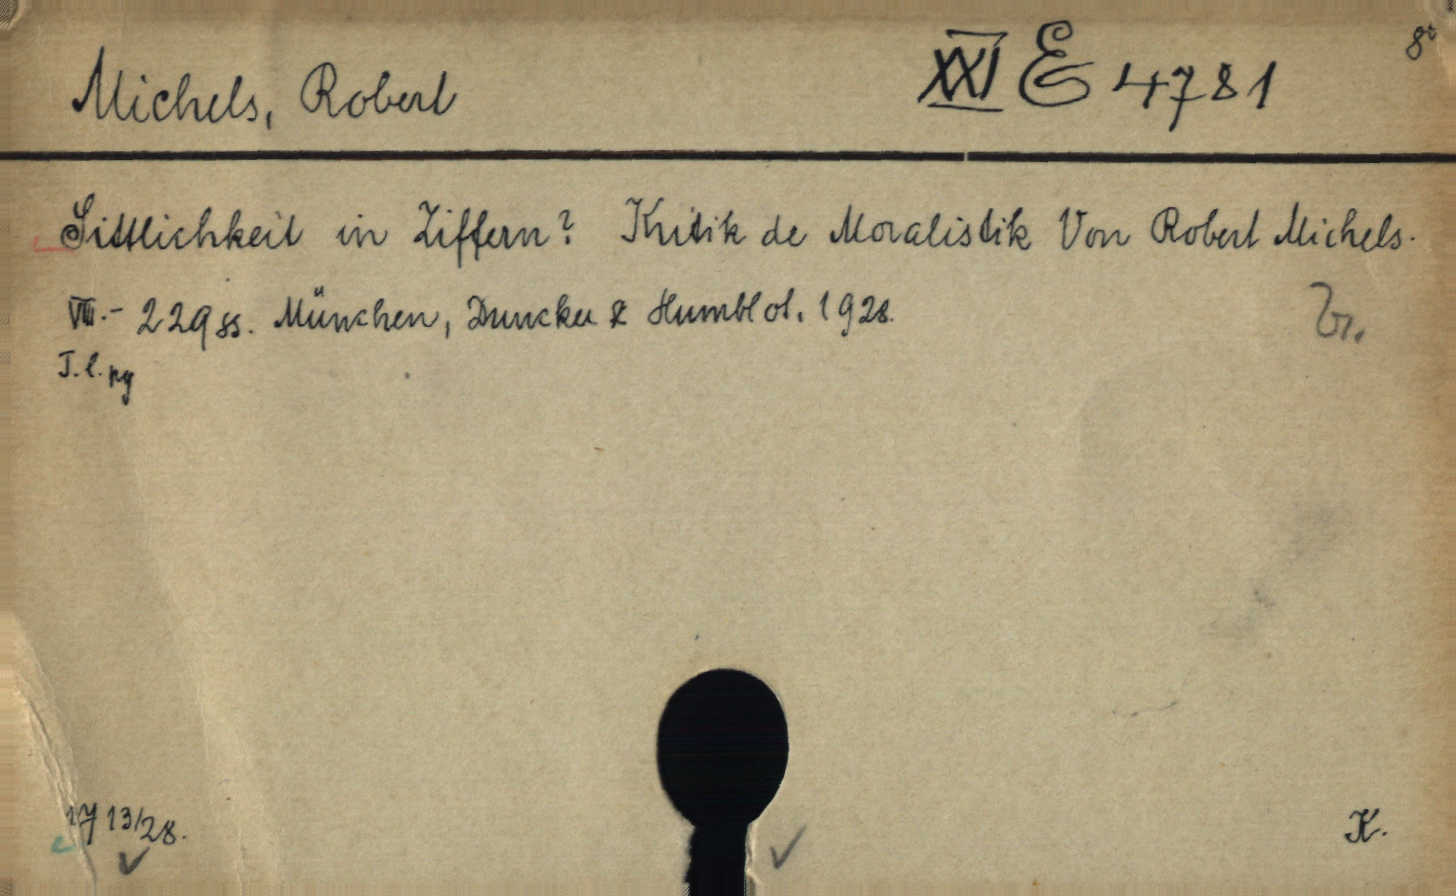 Michels, Robert XXI E 4781 8°
Sittlichkeit in Ziffern? Kritik de Moralistik Von Robert Michels.
VIII.- 229 ss. München, Duncker & Humblot. 1928.
Br.
T.l. pg
1713/28.
K.